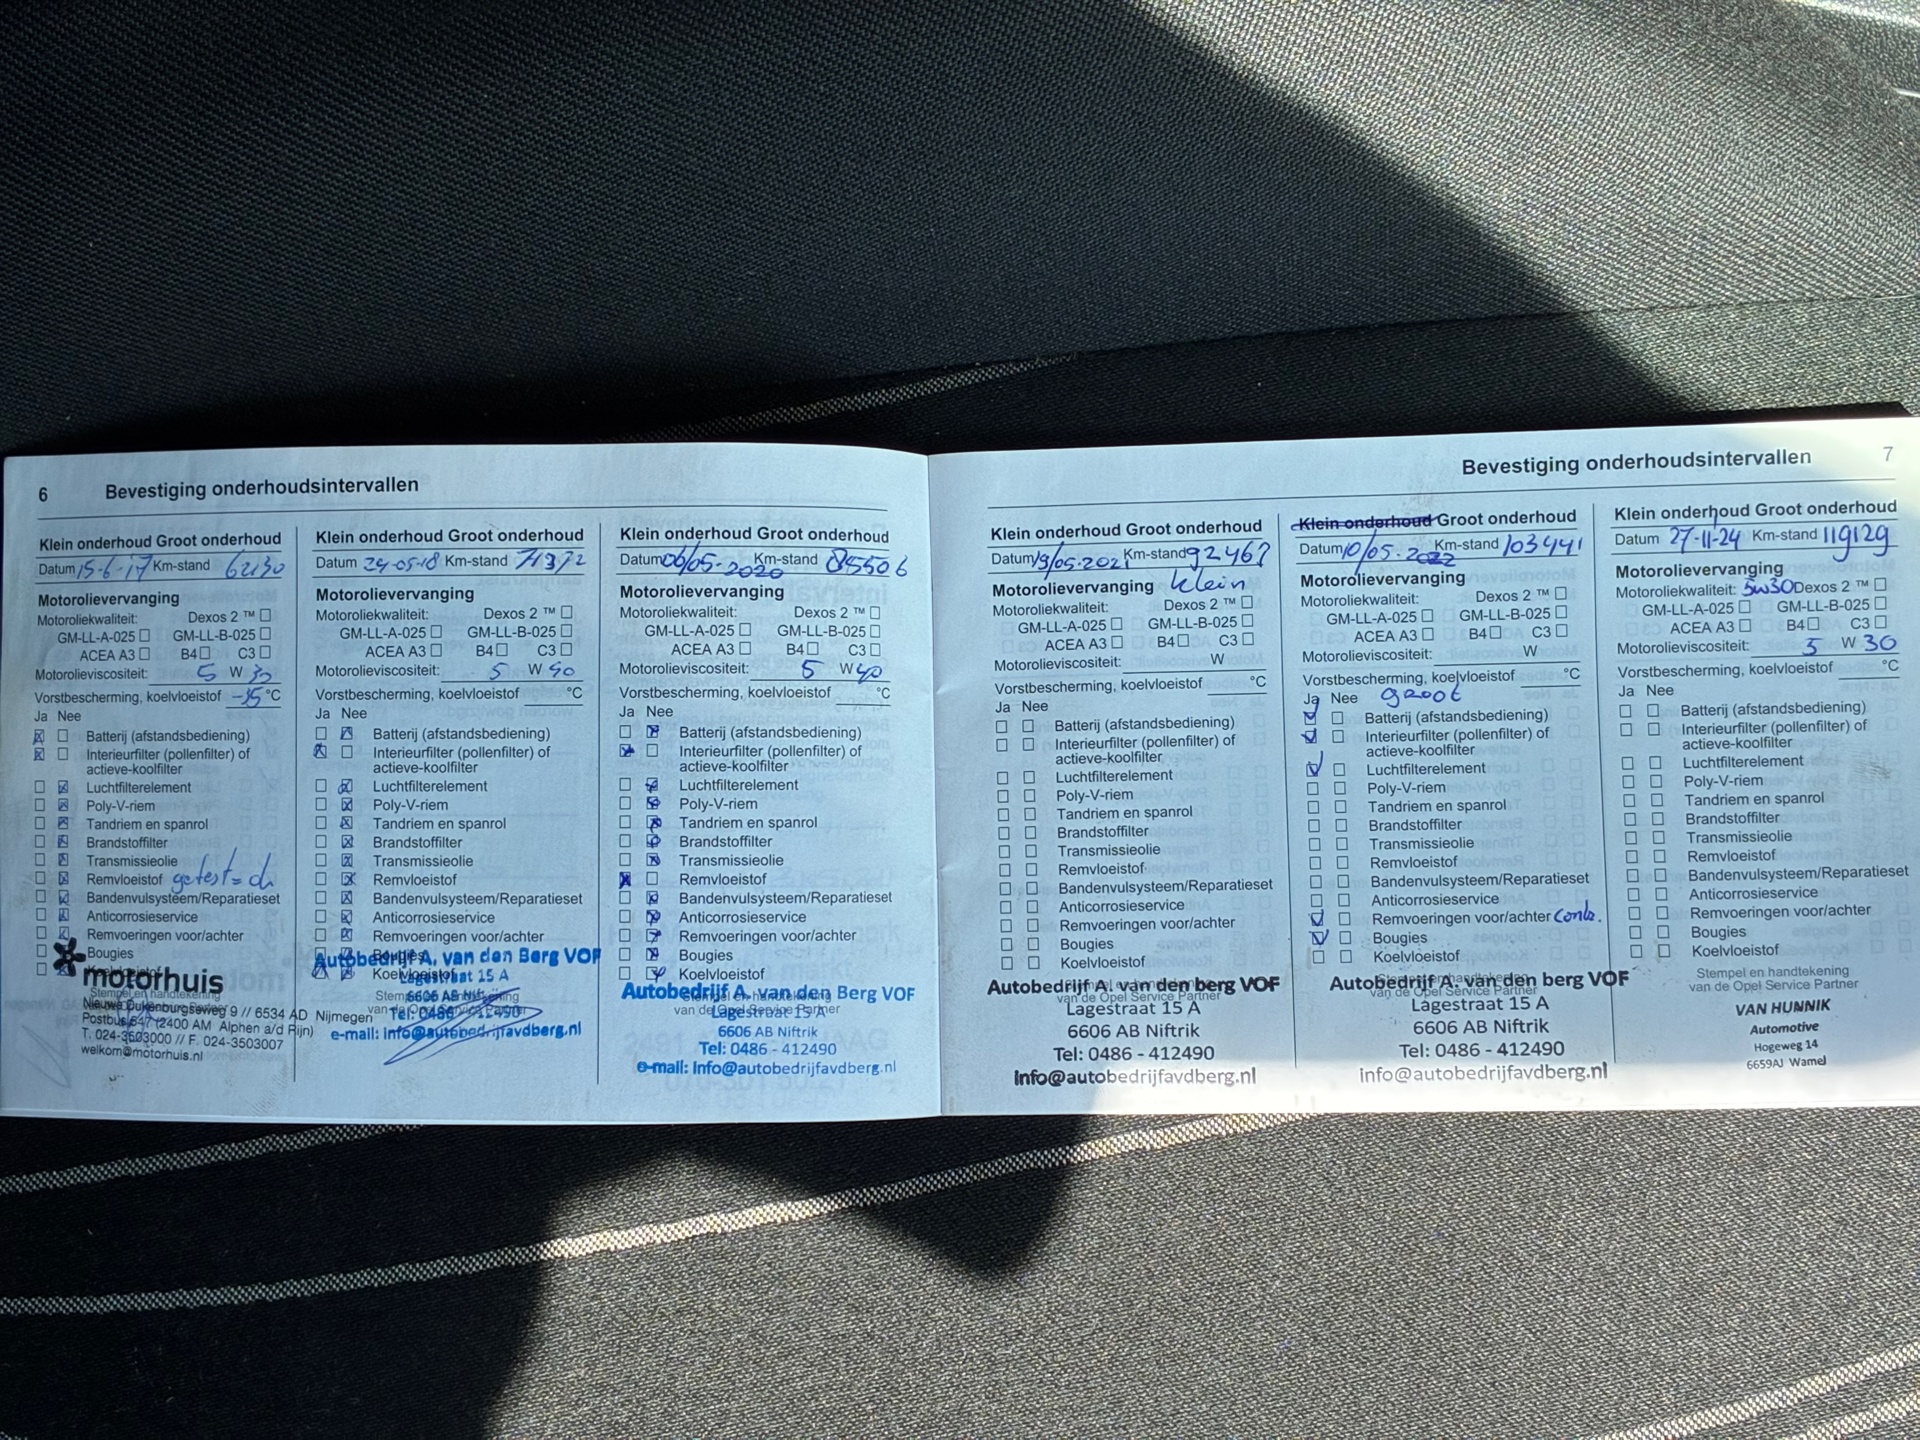 6 Bevestiging onderhoudsintervallen
Klein onderhoud Groot onderhoud
Datum 15-6-17 Km-stand 62130
Motorolievervanging
Motoroliekwaliteit: Dexos 2 ™
GM-LL-A-025 GM-LL-B-025
ACEA A3 B4 C3
Motorolieviscositeit: 5 W 30
Vorstbescherming, koelvloeistof -35 °C
Ja Nee
Batterij (afstandsbediening)
Interieurfilter (pollenfilter) of
actieve-koolfilter
Luchtfilterelement
Poly-V-riem
Tandriem en spanrol
Brandstoffilter
Transmissieolie
Remvloeistof getest = ch
Bandenvulsysteem/Reparatieset
Anticorrosieservice
Remvoeringen voor/achter
Bougies
Koelvloeistof
motorhuis
Stempel en handtekening
Nieuwe Dukenburgseweg 9 // 6534 AD Nijmegen
Postbus 647 (2400 AM Alphen a/d Rijn)
T. 024-3503000 // F. 024-3503007
welkom@motorhuis.nl
Klein onderhoud Groot onderhoud
Datum 24-05-18 Km-stand 71372
Motorolievervanging
Motoroliekwaliteit: Dexos 2 ™
GM-LL-A-025 GM-LL-B-025
ACEA A3 B4 C3
Motorolieviscositeit: 5 W 40
Vorstbescherming, koelvloeistof °C
Ja Nee
Batterij (afstandsbediening)
Interieurfilter (pollenfilter) of
actieve-koolfilter
Luchtfilterelement
Poly-V-riem
Tandriem en spanrol
Brandstoffilter
Transmissieolie
Remvloeistof
Bandenvulsysteem/Reparatieset
Anticorrosieservice
Remvoeringen voor/achter
Bougies
Autobedrijf A. van den Berg VOF
Koelvloeistof
Lagestraat 15 A
6606 AB Niftrik
Tel: 0486 - 412490
e-mail: info@autobedrijfavdberg.nl
Klein onderhoud Groot onderhoud
Datum 06/05-2020 Km-stand 85506
Motorolievervanging
Motoroliekwaliteit: Dexos 2 ™
GM-LL-A-025 GM-LL-B-025
ACEA A3 B4 C3
Motorolieviscositeit: 5 W 40
Vorstbescherming, koelvloeistof °C
Ja Nee
Batterij (afstandsbediening)
Interieurfilter (pollenfilter) of
actieve-koolfilter
Luchtfilterelement
Poly-V-riem
Tandriem en spanrol
Brandstoffilter
Transmissieolie
Remvloeistof
Bandenvulsysteem/Reparatieset
Anticorrosieservice
Remvoeringen voor/achter
Bougies
Koelvloeistof
Autobedrijf A. van den Berg VOF
Stempel en handtekening
van de Opel Service Partner
Lagestraat 15 A
6606 AB Niftrik
Tel: 0486 - 412490
e-mail: Info@autobedrijfavdberg.nl
Bevestiging onderhoudsintervallen 7
Klein onderhoud Groot onderhoud
Datum 19/05-2021 Km-stand 92467
Motorolievervanging klein
Motoroliekwaliteit: Dexos 2 ™
GM-LL-A-025 GM-LL-B-025
ACEA A3 B4 C3
Motorolieviscositeit: W
Vorstbescherming, koelvloeistof °C
Ja Nee
Batterij (afstandsbediening)
Interieurfilter (pollenfilter) of
actieve-koolfilter
Luchtfilterelement
Poly-V-riem
Tandriem en spanrol
Brandstoffilter
Transmissieolie
Remvloeistof
Bandenvulsysteem/Reparatieset
Anticorrosieservice
Remvoeringen voor/achter
Bougies
Koelvloeistof
Autobedrijf A. van den berg VOF
van de Opel Service Partner
Lagestraat 15 A
6606 AB Niftrik
Tel: 0486 - 412490
Info@autobedrijfavdberg.nl
Klein onderhoud Groot onderhoud
Datum 10/05-2022 Km-stand 103441
Motorolievervanging
Motoroliekwaliteit: Dexos 2 ™
GM-LL-A-025 GM-LL-B-025
ACEA A3 B4 C3
Motorolieviscositeit: W
Vorstbescherming, koelvloeistof °C
Ja Nee groot
Batterij (afstandsbediening)
Interieurfilter (pollenfilter) of
actieve-koolfilter
Luchtfilterelement
Poly-V-riem
Tandriem en spanrol
Brandstoffilter
Transmissieolie
Remvloeistof
Bandenvulsysteem/Reparatieset
Anticorrosieservice
Remvoeringen voor/achter
Bougies
Koelvloeistof
Autobedrijf A. van den berg VOF
Stempel en handtekening
van de Opel Service Partner
Lagestraat 15 A
6606 AB Niftrik
Tel: 0486 - 412490
info@autobedrijfavdberg.nl
Klein onderhoud Groot onderhoud
Datum 27-11-24 Km-stand 119129
Motorolievervanging
Motoroliekwaliteit: 5w30 Dexos 2 ™
GM-LL-A-025 GM-LL-B-025
ACEA A3 B4 C3
Motorolieviscositeit: 5 W 30
Vorstbescherming, koelvloeistof °C
Ja Nee
Batterij (afstandsbediening)
Interieurfilter (pollenfilter) of
actieve-koolfilter
Luchtfilterelement
Poly-V-riem
Tandriem en spanrol
Brandstoffilter
Transmissieolie
Remvloeistof
Bandenvulsysteem/Reparatieset
Anticorrosieservice
Remvoeringen voor/achter
Bougies
Koelvloeistof
Stempel en handtekening
van de Opel Service Partner
VAN HUNNIK
Automotive
Hogeweg 14
6659AJ Wamel